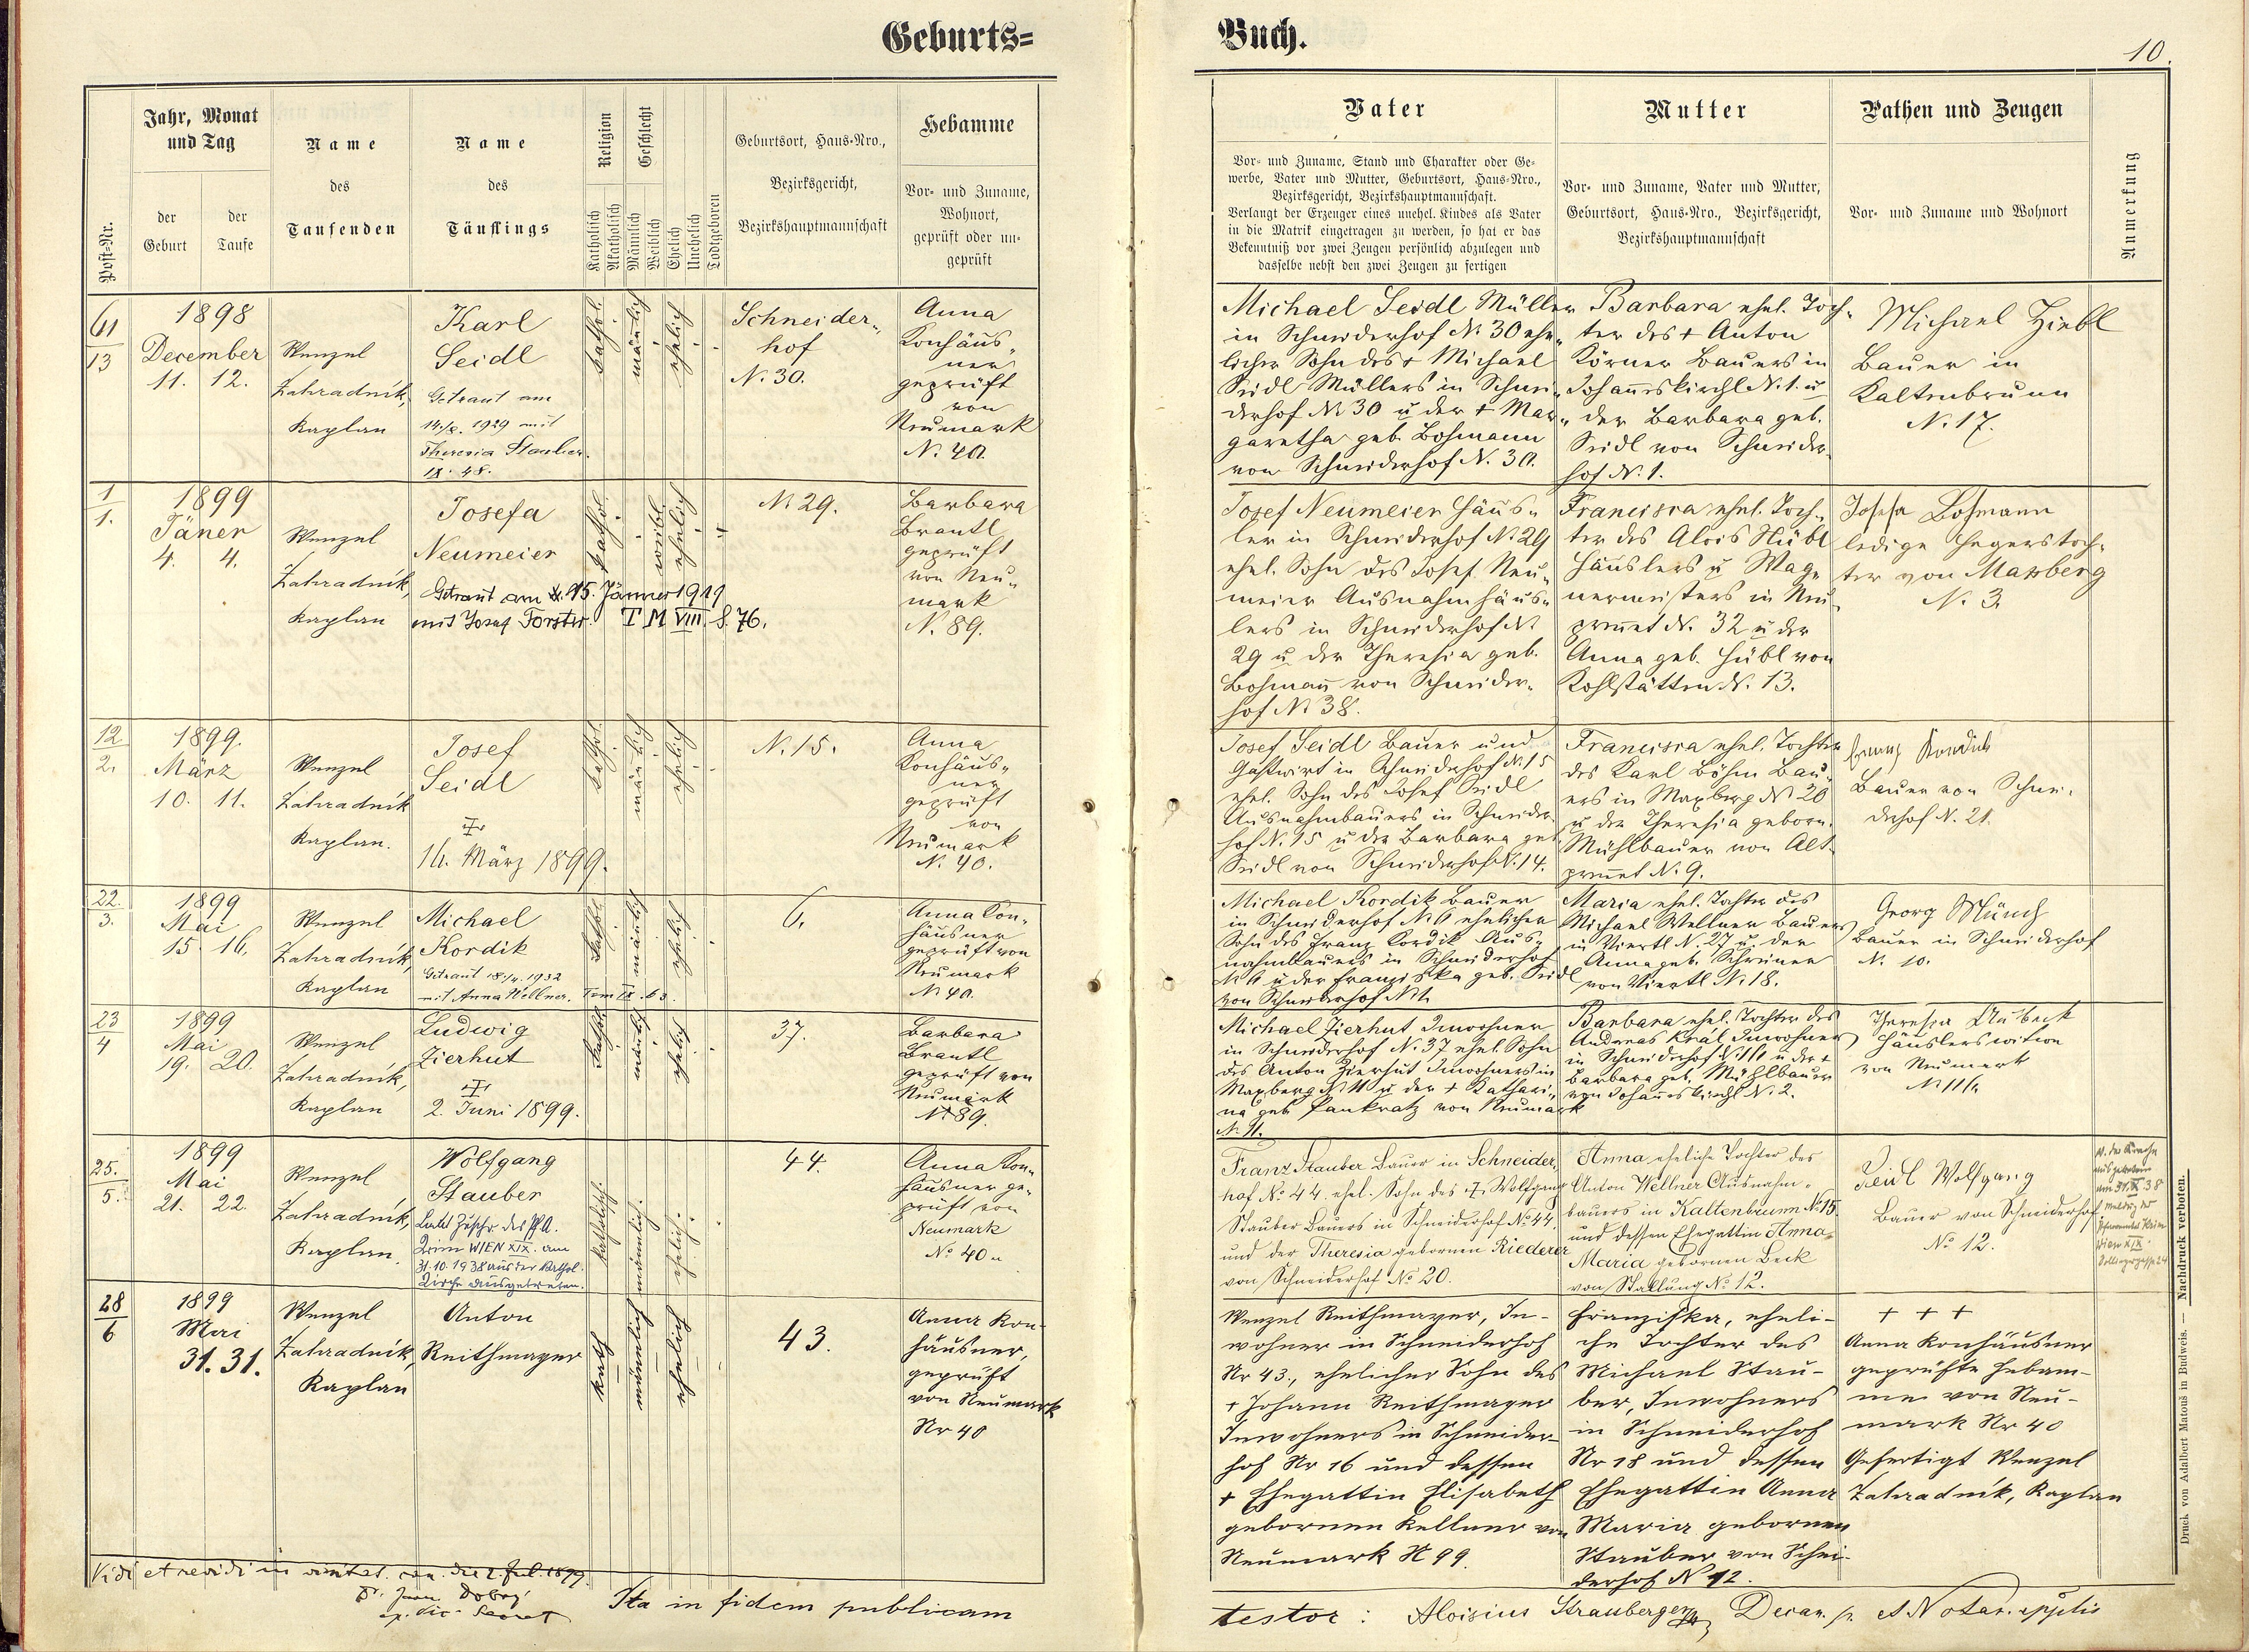 Geburts=
Buch.
10.
Post-Nr.
Jahr, Monat
und Tag
der
Geburt
der
Taufe
Name
des
Taufenden
Name
des
Täuflings
Religion
Katholisch
Akatholisch
Geschlecht
Männlich
Weiblich
Ehelich
Unehelich
Todtgeboren
Geburtsort, Haus-Nro.,
Bezirksgericht,
Bezirkshauptmannschaft
Hebamme
Vor- und Zuname,
Wohnort,
geprüft oder un-
geprüft
Vater
Vor- und Zuname, Stand und Charakter oder Ge-
werbe, Vater und Mutter, Geburtsort, Haus-Nro.,
Bezirksgericht, Bezirkshauptmannschaft.
Verlangt der Erzeuger eines unehel. Kindes als Vater
in die Matrik eingetragen zu werden, so hat er das
Bekenntniß vor zwei Zeugen persönlich abzulegen und
dasselbe nebst den zwei Zeugen zu fertigen
Mutter
Vor- und Zuname, Vater und Mutter,
Geburtsort, Haus-Nro., Bezirksgericht,
Bezirkshauptmannschaft
Pathen und Zeugen
Vor- und Zuname und Wohnort
Anmerkung
13
1898
December
11. 12.
Wenzel
Zahradník,
Kaplan
Karl
Seidl
Getraut am
1929 mit
Theresia Stauber.
IX. 48.
kathol.
mänlich
ehelich
Schneider„
hof
N. 30.
Anna
Konhäus„
ner
geprüft
von
Neumark
N. 40.
Michael Seidl Müller
in Schneiderhof N. 30 ehe„
licher Sohn des + Michael
Seidl Müllers in Schnei„
derhof N. 30 u der + Mar„
garetha geb. Bohmann
von Schneiderhof N. 30.
Barbara ehel. Toch„
ter des + Anton
Körner Bauers in
Johanneskirchl N. 1. u
der Barbara geb.
Seidl von Schneider„
hof N. 1.
Michael Ziebl
Bauer in
Kaltenbrunn
N. 17.
1
1.
1899
Jäner
4. 4.
Wenzel
Zahradník,
Kaplan
Josefa
Neumeier
Getraut am 15. Jänner 1919
mit Josef Forster. T M VIII. S. 76.
kathol.
weibl
ehelich
N. 29.
Barbara
Brantl
geprüft
von Neu„
mark
N. 89.
Josef Neumeier Häus„
ler in Schneiderhof N. 29
ehel. Sohn des Josef Neu„
meier Ausnahmhäus„
lers in Schneiderhof N.
29 u der Theresia geb.
Bohman von Schneider„
hof N. 38.
Francisca ehel. Toch„
ter des Alois Hübl
Häuslers u Wag„
nermeisters in Neu„
N. 32 u der
Anna geb. Hübl von
Kohlstätten N. 13.
Josefa Bohmann
ledige Hegerstoch„
ter von Maxberg
N. 3.
12
2.
1899.
März
10. 11.
Wenzel
Zahradník
Kaplan.
Josef
Seidl
März 1899.
kathol.
mänlich
ehelich
N. 15.
Anna
Konhäus„
ner
geprüft
von
Neumark
N. 40.
Josef Seidl Bauer und
Gastwirt in Schneiderhof N. 15
ehel. Sohn des Josef Seidl
Ausnahmbauers in Schneider„
hof N. 15 u der Barbara geb.
Seidl von Schneiderhof N. 14.
Francisca ehel. Tochter
des Karl Böhm Bau„
ers in Maxberg N. 20
u der Theresia geborn.
Mühlbauer von Alt„
N. 9.
Franz Kordik
Bauer von Schnei„
derhof N. 21.
22.
3.
1899
Mai
15. 16.
Wenzel
Zahradník,
Kaplan
Michael
Kordik
Getraut 1932
mit Anna Wellner. Tom IX
kathol.
mänlich
ehelich
6.
Anna Kon„
häusner
geprüft von
Neumark
N. 40.
Michael Kordik Bauer
in Schneiderhof N. 6 ehelicher
Sohn des Franz Kordik Aus„
nahmbauers in Schneiderhof
N. 6 u der Franziska geb. Seidl
von Schneiderhof N. 1.
Maria ehel. Tochter des
Michael Wellner Bauers
in Viertl N. 27 u. der
Anna geb. Schreiner
von Viertl N. 18.
Georg Münch
Bauer in Schneiderhof
N. 10.
23
4
1899
Mai
19. 20.
Wenzel
Zahradník,
Kaplan
Ludwig
Zierhut
2. Juni 1899.
kathol.
mänlich
ehelich
37.
Barbara
Brantl
geprüft von
Neumark
N. 89.
Michael Zierhut Inwohner
in Schneiderhof N. 37 ehel. Sohn
des Anton Zierhut Inwohners in
Maxberg N. 11 u der + Kathari„
na geb. Pankratz von Neumark
N. 11.
Barbara ehel. Tochter des
Andreas Král Inwohner
in Schneiderhof u der +
Barbara geb. Mühlbauer
von Johanneskirchl N. 2.
Theresia
Häuslerswitwe
von Neumark
25.
5.
1899
Mai
21. 22.
Wenzel
Zahradník,
Kaplan
Wolfgang
Stauber
Laut Zuschr. des PfA.
WIEN XIX. am
31.10.1938 aus der kathol.
Kirche ausgetreten.
katholisch.
männlich.
ehelich.
44.
Anna Kon„
häusner ge„
prüft von
Neumark
No 40
Franz Stauber Bauer in Schneider„
hof No 44. ehel. Sohn des + Wolfgang
Stauber Bauers in Schneiderhof No 44.
und der Theresia gebornen Riederer
von Schneiderhof No 20.
Anna eheliche Tochter des
Anton Wellner Ausnahm„
bauers in Kaltenbrunn No 15.
und dessen Ehegattin Anna
Maria gebornen Beck
von Stallung No 12.
Seidl Wolfgang
Bauer von Schneiderhof
No 12.
28
6
1899
Mai
31. 31.
Wenzel
Zahradník,
Kaplan
Anton
Reithmayer
kath
männlich
ehelich
43.
Anna Kon-
häusner,
geprüft
von Neumark
Nr 40
Wenzel Reithmayer, In-
wohner in Schneiderhof
Nr 43., ehelicher Sohn des
+ Johann Reithmayer
Inwohners in Schneider-
hof Nr 16 und dessen
+ Ehegattin Elisabeth
gebornen Kellner von
Neumark N 99.
Franziska, eheli-
che Tochter des
Michael Stau-
ber, Inwohners
in Schneiderhof
Nr 18 und dessen
Ehegattin Anna
Maria gebornen
Stauber von Schnei-
derhof N 12.
+ + +
Anna Konhäusner
geprüfte Hebam-
me von Neu-
mark Nr 40
Gefertigt Wenzel
Zahradník, Kaplan
Vidi et revidi in visitat. can. die 2. Jul. 1899.
Ita in fidem publicam
testor: Aloisius Strauberger, Decan. et Notar. appstis
Druck von Adalbert Matouš in Budweis. — Nachdruck verboten.